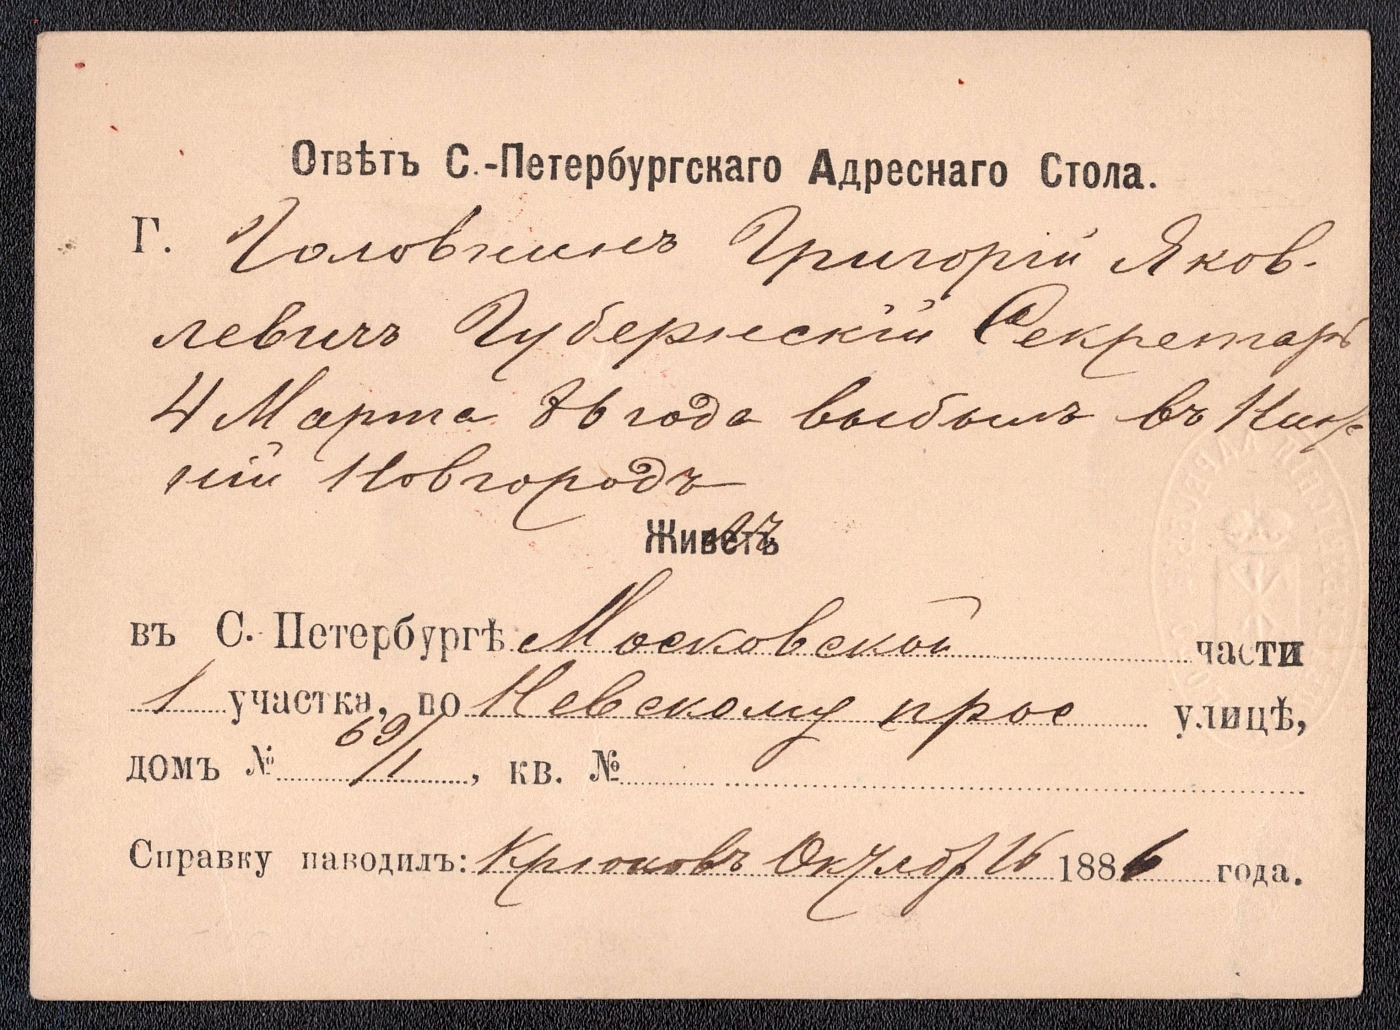 Отвѣтъ С.-Петербургскаго Адреснаго Стола.
Г. Головкинъ Григорій Яков-
левичъ Губернскій Секретарь
4 Марта 86 года выбылъ въ Ниж-
ній Новгородъ
Живетъ
въ С. Петербургѣ Московской части
1 участка, по Невскому прос улицѣ,
домъ № 69/1, кв. №
Справку наводилъ: Крюковъ 16 1886 года.